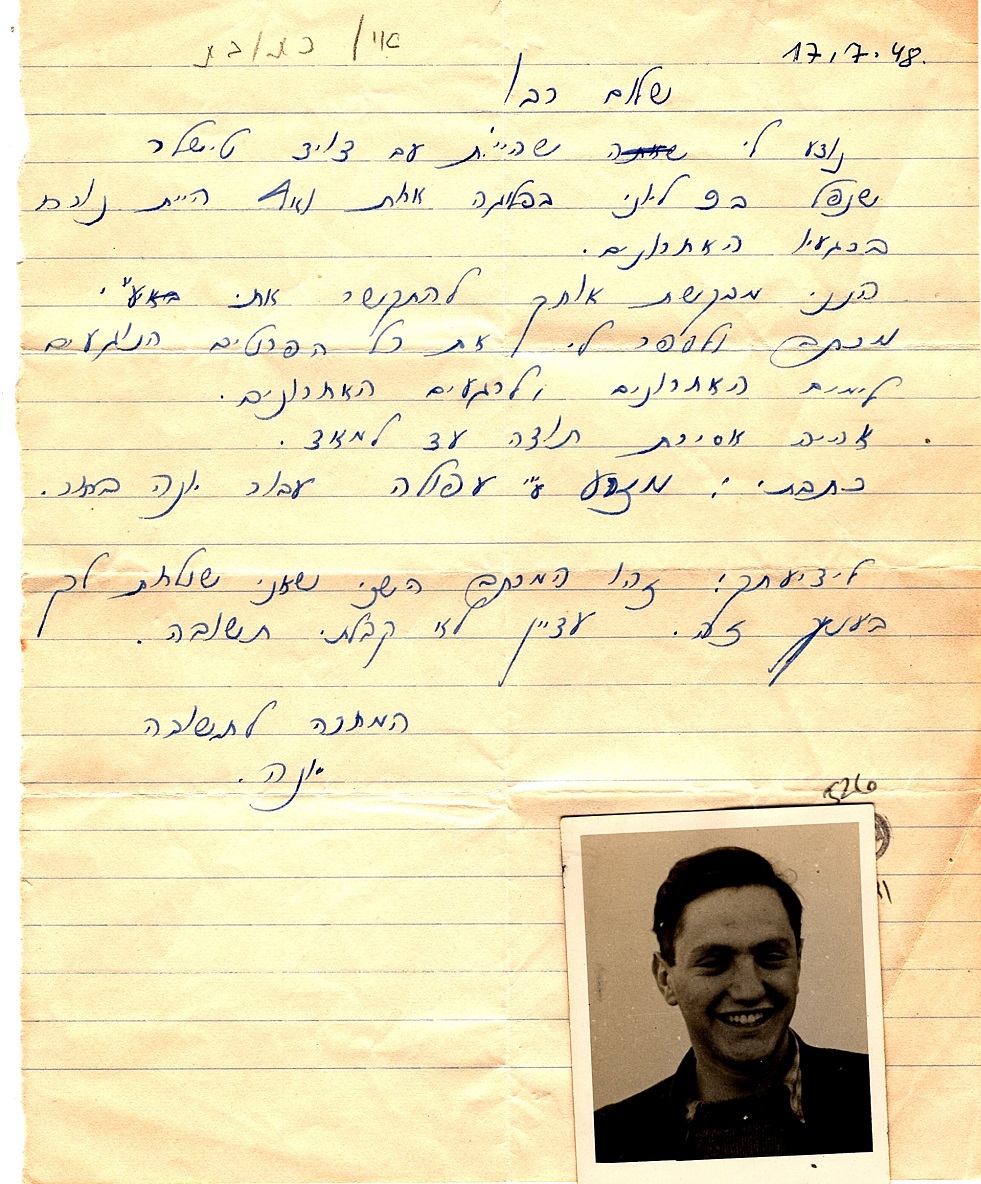 אין כתובת
17.7.48.
שלום רב!
נודע לי שהיית עם דויד טישלר
שנפל ב 9 ליוני בפלוגה אחת ואף היית נוכח
ברגעיו האחרונים.
הנני מבקשת אותך להתקשר אתי באע"י
מכתב ולספר לי את כל הפרטים הנוגעים
לימים האחרונים ולרגעים האחרונים.
אהיה אסירת תודה עד למאד.
כתבתי: מזרע ע"י עפולה עבור יונה
לידיעתך: זהו המכתב השני שאני שולחת לך
בענין זה. עדיין לא קבלתי תשובה.
המחכה לתשובה
יונה.